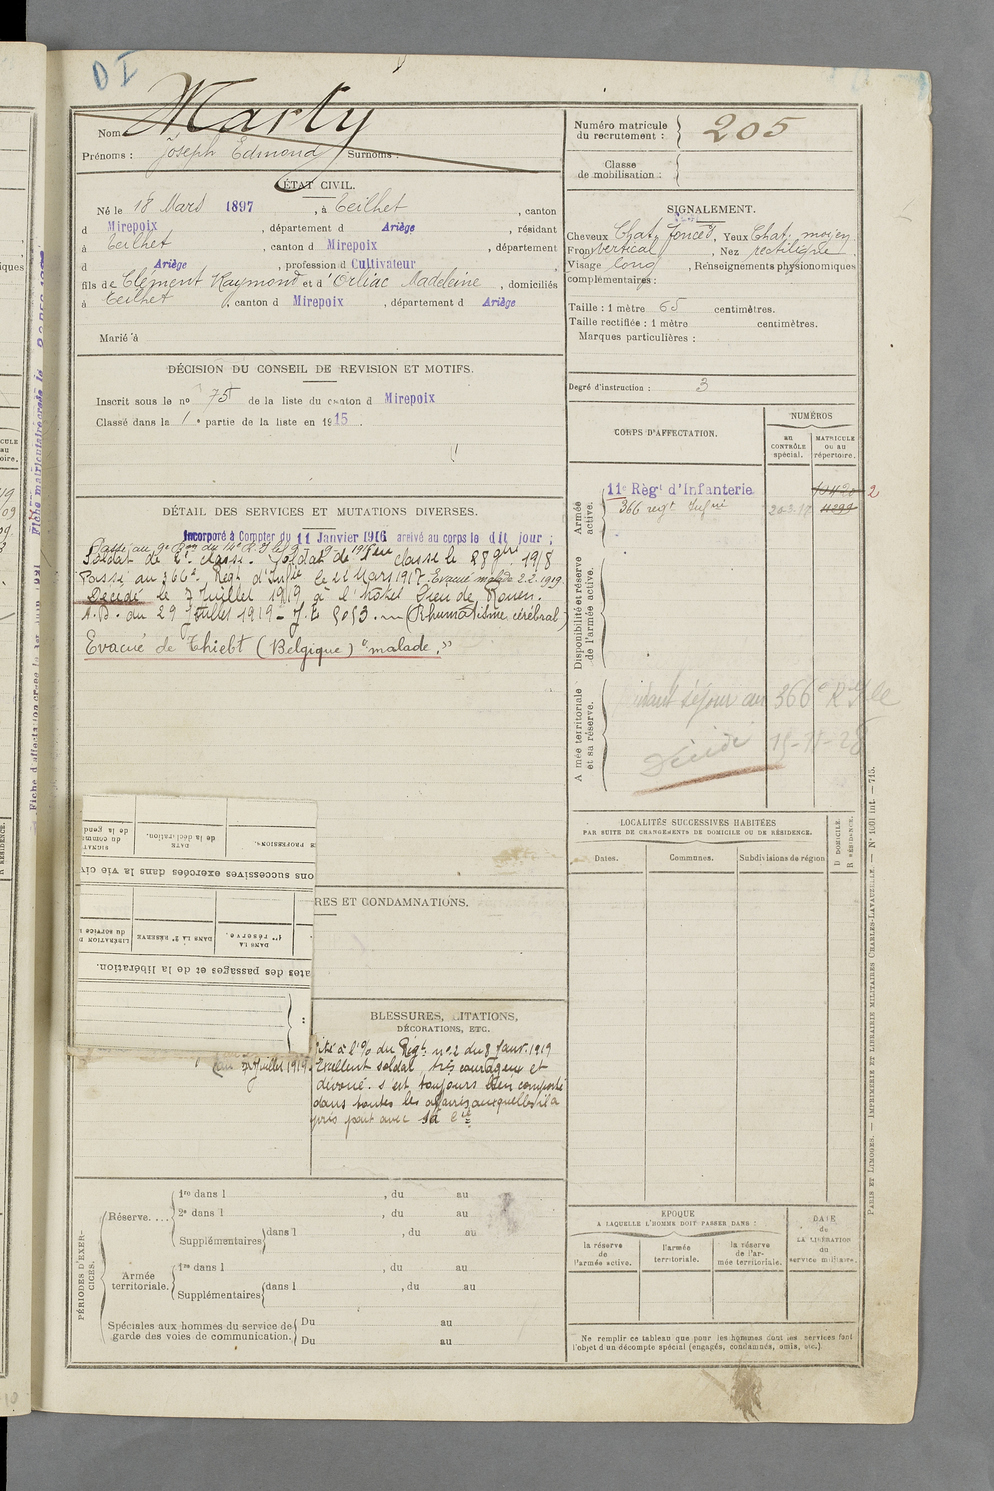 D I
Marty
Nom
Prénoms : Joseph Edmond Surnoms :
ÉTAT CIVIL.
Né le 18 Mars 1897 , à Teilhet , canton
d Mirepoix , département d Ariège , résidant
à Teilhet , canton d Mirepoix , département
d Ariège , profession d Cultivateur
fils de Clément Raymond et d' Orliac Madeleine , domiciliés
à Teilhet , canton d Mirepoix , département d Ariège
Marié à
DÉCISION DU CONSEIL DE REVISION ET MOTIFS.
Inscrit sous le no 75 de la liste du canton d Mirepoix
Classé dans la 1 e partie de la liste en 1915 .
DÉTAIL DES SERVICES ET MUTATIONS DIVERSES.
Incorporé à Compter du 11 Janvier 1916 arrivé au corps le dit jour ;
Passé au 9e
Soldat de 2e classe. Soldat de 1ère classe le 28 9bre 1918
Passé au 366e Regt d'Infie le 22 Mars 1917. Evacué malade 2.2.1919.
Décédé le 7 Juillet 1919 à l'hôtel Dieu de Rouen.
A.D. du 29 Juillet 1919 - J.E 5053. (Rhumatisme cérébral)
Evacué de Thiebt (Belgique) "malade."
RES ET CONDAMNATIONS.
BLESSURES, CITATIONS,
DÉCORATIONS, ETC.
Cité à l'O/ du Régt no 2 du 8 Janv. 1919
Excellent soldat, très courageux et
dévoué. s'est toujours bien comporté
dans toutes les affaires auxquelles il a
pris part avec sa Cie
Juillet 1919.
PROFESSION.
DATE
de la déclaration.
ons successives exercées dans la vie civ
DANS LA
1re réserve.
DANS LA 2e RÉSERVE
LIBÉRATION D
du service
ates des passages et de la libération.
PÉRIODES D'EXERCICES.
Réserve. ....
1re dans l , du au
2e dans l , du au
Supplémentaires dans l , du au
Armée
territoriale.
1re dans l , du au
Supplémentaires dans l , du au
Spéciales aux hommes du service de
garde des voies de communication.
Du au
Du au
Numéro matricule
du recrutement : 205
Classe
de mobilisation :
SIGNALEMENT.
Cheveux Chat. foncé , Yeux Chat. moyen
Front vertical , Nez rectiligne
Visage long , Renseignements physionomiques
complémentaires :
Taille : 1 mètre 65 centimètres.
Taille rectifiée : 1 mètre centimètres.
Marques particulières :
Degré d'instruction : 3
CORPS D'AFFECTATION.
NUMÉROS
au
CONTRÔLE
spécial.
MATRICULE
ou au
répertoire.
Armée
active.
11e Règt d'Infanterie 2
366 regt Infrie
Disponibilité et réserve
de l'armée active.
Armée territoriale
et sa réserve.
séjour au 366e
Décédé
LOCALITÉS SUCCESSIVES HABITÉES
PAR SUITE DE CHANGEMENTS DE DOMICILE OU DE RÉSIDENCE.
D DOMICILE.
R RÉSIDENCE.
Dates.
Communes.
Subdivisions de région
EPOQUE
A LAQUELLE L'HOMME DOIT PASSER DANS :
la réserve
de
l'armée active.
l'armée
territoriale.
la réserve
de l'ar-
mée territoriale.
DATE
de
LA LIBÉRATION
du
service militaire.
Ne remplir ce tableau que pour les hommes dont les services font
l'objet d'un décompte spécial (engagés, condamnés, omis, etc.).
PARIS ET LIMOGES. — IMPRIMERIE ET LIBRAIRIE MILITAIRES CHARLES-LAVAUZELLE. — No 1001 int. — 715.